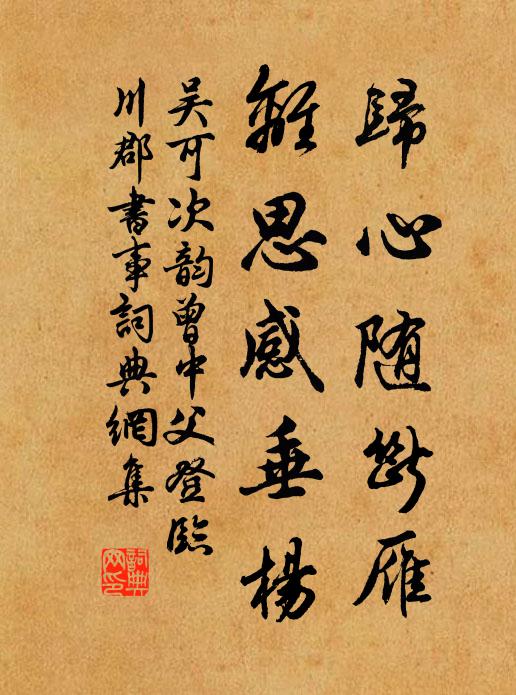 歸心随斷雁
離思感垂楊
吴可次韵曾中父登臨
川郡書事詞典網集
詞典網印